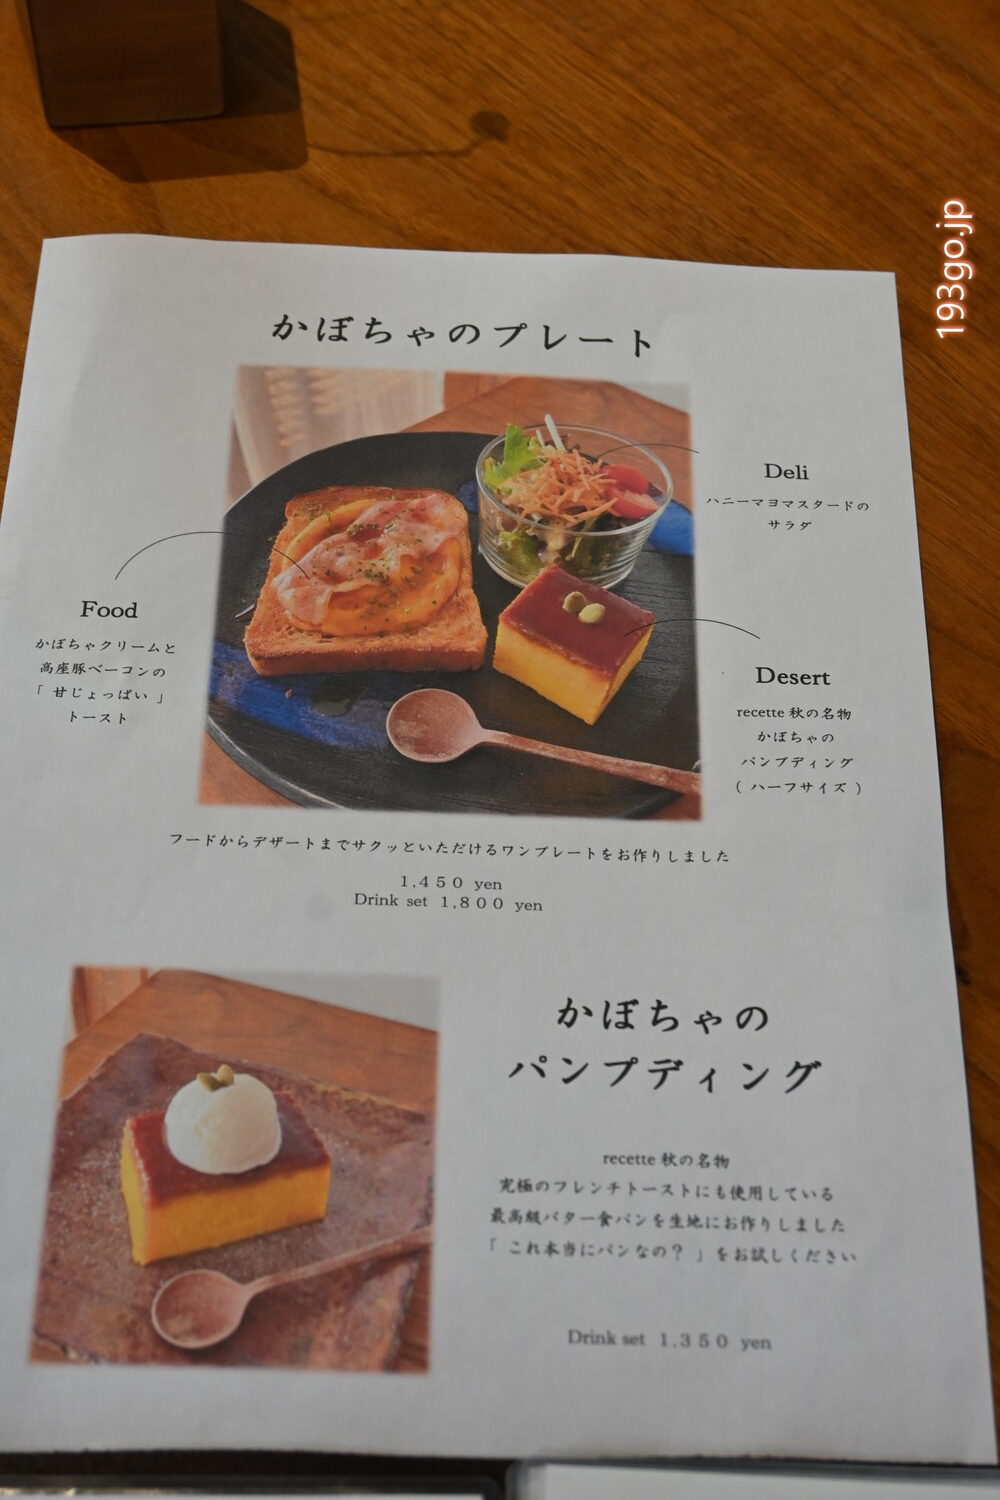 193go.jp
かぼちゃのプレート
Deli
ハニーマヨマスタードの
サラダ
Food
かぼちゃクリームと
高座豚ベーコンの
「 甘じょっぱい 」
トースト
Desert
recette 秋の名物
かぼちゃの
パンプディング
( ハーフサイズ )
フードからデザートまでサクッといただけるワンプレートをお作りしました
1,450 yen
Drink set 1,800 yen
かぼちゃの
パンプディング
recette 秋の名物
究極のフレンチトーストにも使用している
最高級バター食パンを生地にお作りしました
「 これ本当にパンなの？ 」をお試しください
Drink set 1,350 yen